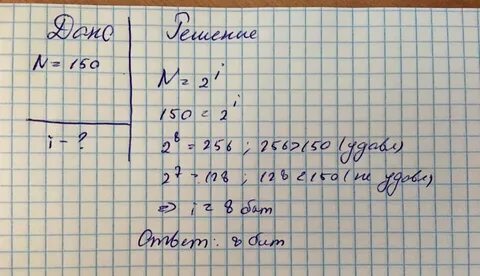 Дано
N = 150
i - ?
Решение
N = 2^i
150 = 2^i
2^8 = 256 ; 256>150 (удовл)
2^7 = 128 ; 128 < 150 (не удовл)
=> i = 8 бит
Ответ: 8 бит